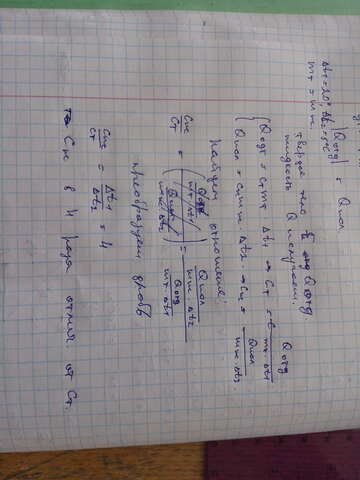 |Qотд| = Qпол
Δt₁ = 20°, Δt₂ = 5°C
mт = mж
твердое тело Qотд
жидкость Q
{ Qотд = Cт mт Δt₁ → Cт = Qотд / mт Δt₁
Qпол = Cж mж Δt₂ → Cж = Qпол / mж Δt₂
найдем отношение:
Cж / Cт = (Qпол / mж Δt₂) / (Qотд / mт Δt₁) = Qпол / mж Δt₂ / Qотд / mт Δt₁
преобразуем дробь
Cж / Cт = Δt₁ / Δt₂ = 4
Cж в 4 раза отлич от Cт.